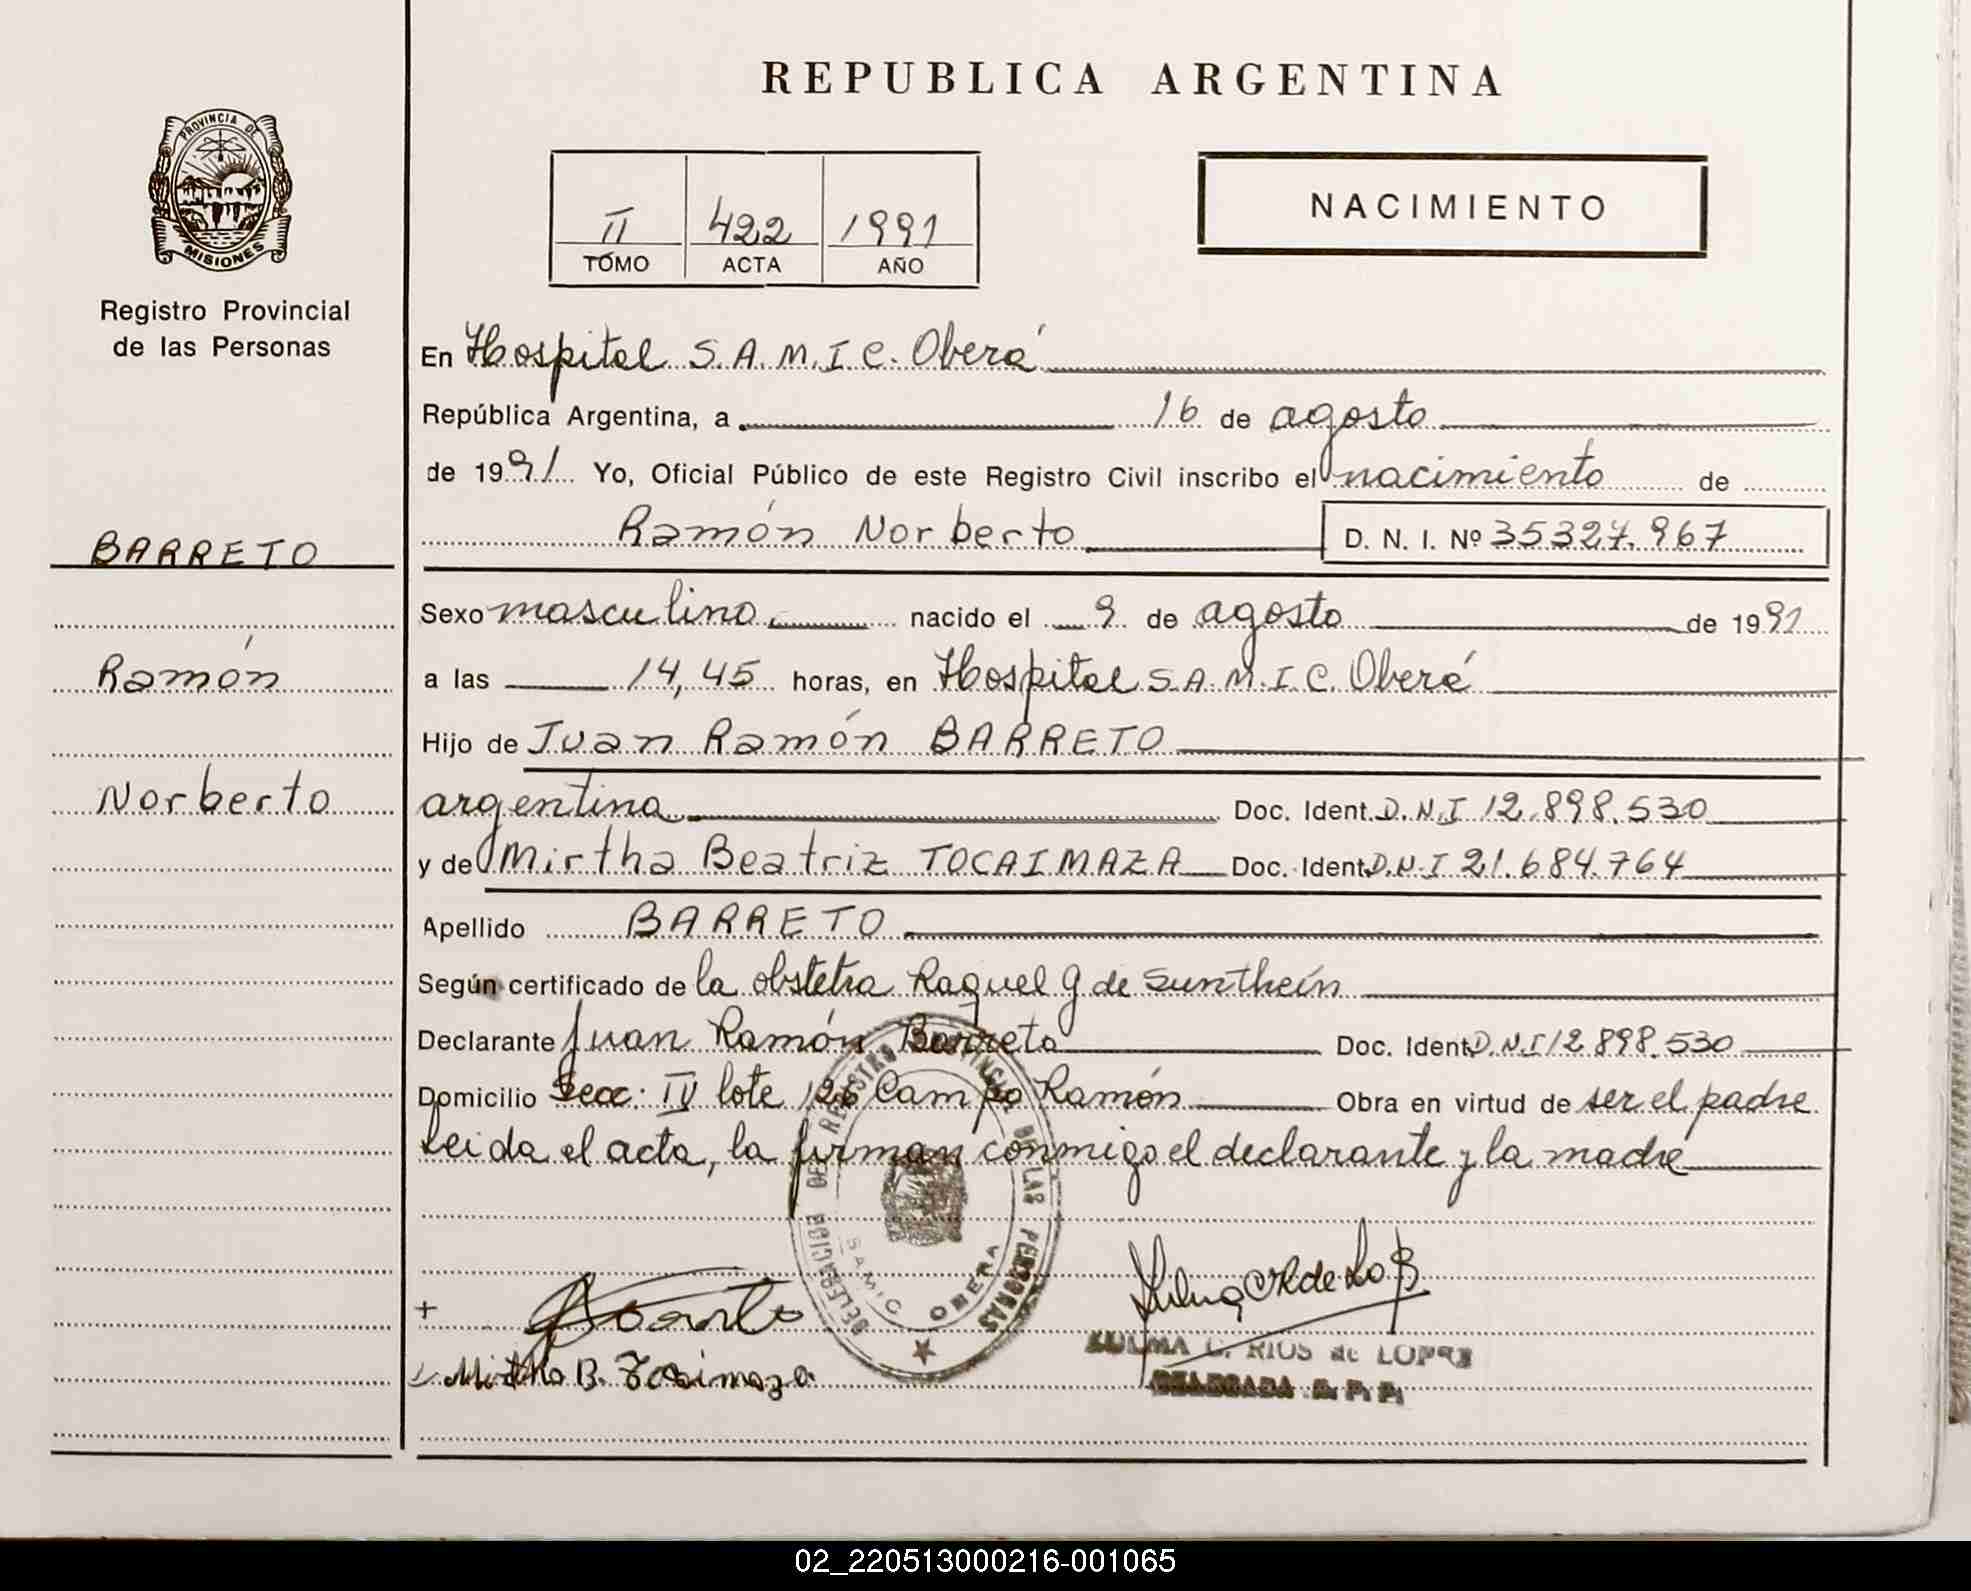 REPUBLICA ARGENTINA
PROVINCIA DE
MISIONES
Registro Provincial
de las Personas
II 422 1991
TOMO ACTA AÑO
NACIMIENTO
En Hospital S.A.M.I.C. Oberá
República Argentina, a 16 de agosto
de 1991 Yo, Oficial Público de este Registro Civil inscribo el nacimiento de
Ramón Norberto D. N. I. Nº 35327.967
BARRETO
Sexo masculino nacido el 9 de agosto de 1991
Ramón
a las 14,45 horas, en Hospital S.A.M.I.C. Oberá
Hijo de Juan Ramón BARRETO
Norberto
argentina Doc. Ident. D.N.I 12.898.530
y de Mirtha Beatriz TOCAIMAZA Doc. Ident. D.N.I 21.684.764
Apellido BARRETO
Según certificado de la obstetra Raquel G de Sunthein
Declarante Juan Ramón Barreto Doc. Ident. D.N.I 12 898.530
Domicilio Secc: IV lote 126 Campo Ramón Obra en virtud de ser el padre
Leida el acta, la firman conmigo el declarante y la madre
DELEGACION DE REGISTRO PROVINCIAL DE LAS PERSONAS
SAMIC OBERA
Mirtha B. Tocaimaza
ZULMA C. RIOS de LOPEZ
DELEGADA R. P. P.
02_220513000216-001065